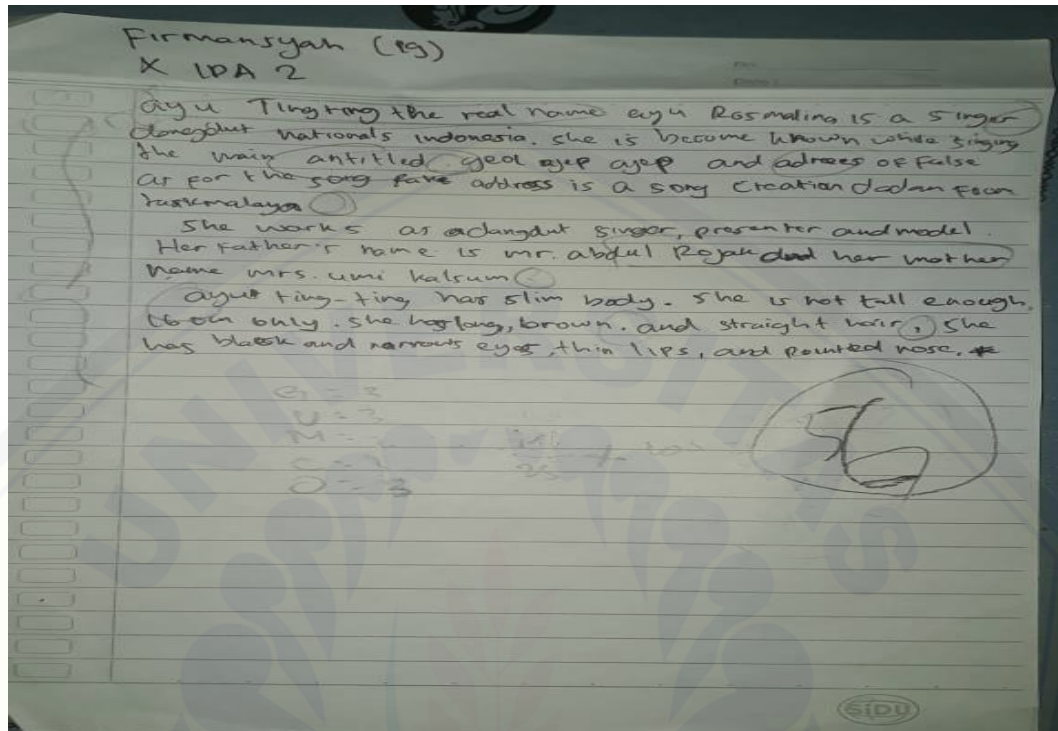 Firmansyah (19)
X IPA 2
ayu Tingting the real name ayu Rosmalina is a singer
dangdut nationals indonesia. she is become known while singing
the main antitled geol ajep ajep and adrees of False
as for the song fake address is a song creation dadan from
tasikmalaya
She works as adangdut singer, presenter and model.
Her father's name is mr. abdul Rojak and her mother
name mrs. umi kalsum
ayu ting-ting has slim body. she is not tall enough,
cm only. she has long, brown. and straight hair, She
has black and narrows eyes, thin lips, and pointed nose.
= 3
U = 3
M =
O = 3
56
SiDU
UNIVERSITAS